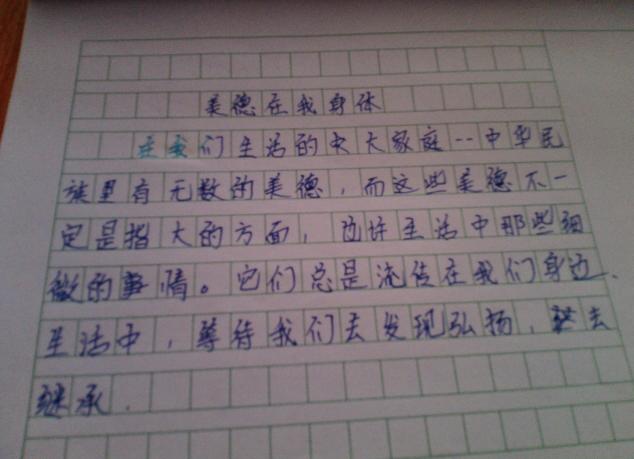 美德在我身体
在我们生活的大家庭--中华民
族里有无数的美德，而这些美德不一
定是指大的方面，也许生活中那些细
微的事情。它们总是流传在我们身边.
生活中，等待我们去发现弘扬，去
继承.